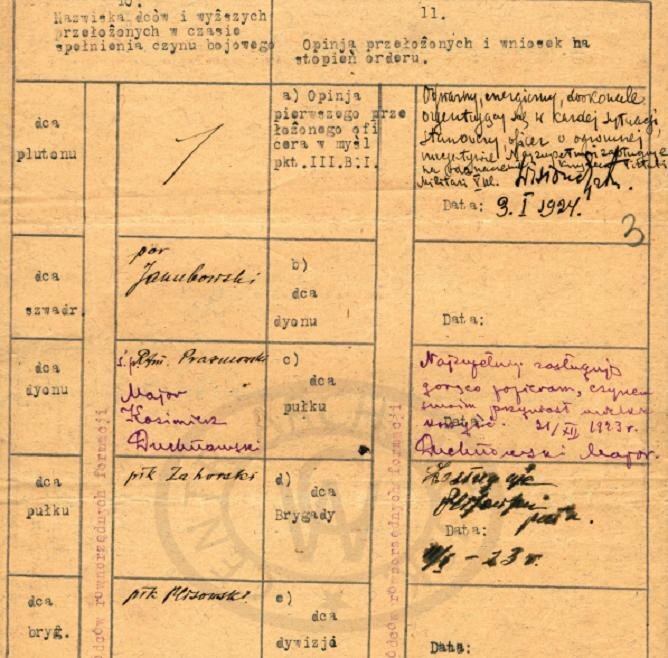 10.
Nazwiska dców i wyższych
przełożonych w czasie
spełnienia czynu bojowego
11.
Opinja przełożonych i wniosek na
stopień orderu.
dca
plutonu
a) Opinja
pierwszego prze
łożonego ofi
cera w myśl
pkt. III.B.I.
Odważny, energiczny, doskonale
orjentujący się w każdej sytuacji,
stanowczy oficer o ogromnej
Militari V kl.
Data: 3. I 1924.
3
dca
szwadr.
por
Janukowski
b)
dca
dyonu
Data:
dca
dyonu
ś.p. Rtm. Prazmowski
Major
Kazimierz
Duchnowski
c)
dca
pułku
Najzupełniej zasługuje
gorąco popieram, czynem
swoim przyniósł
Data: 21/XII 1923 r.
Duchnowski Major.
dca
pułku
płk Zahorski
d)
dca
Brygady
Zasługuje
Data:
23 r.
dca
bryg.
płk Plisowski
e)
dca
dywizji
Data:
dców równorzędnych formacji
dców równorzędnych formacji